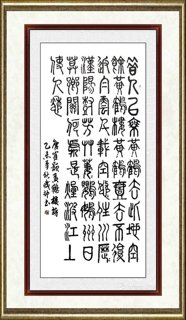 昔人已乘黃鶴去此地空
餘黃鶴樓黃鶴一去不復
返白雲千載空悠悠晴川歷歷
漢陽樹芳草萋萋鸚鵡洲日
暮鄉關何處是煙波江上
使人愁
唐崔顥黃鶴樓詩
乙未 秋 書